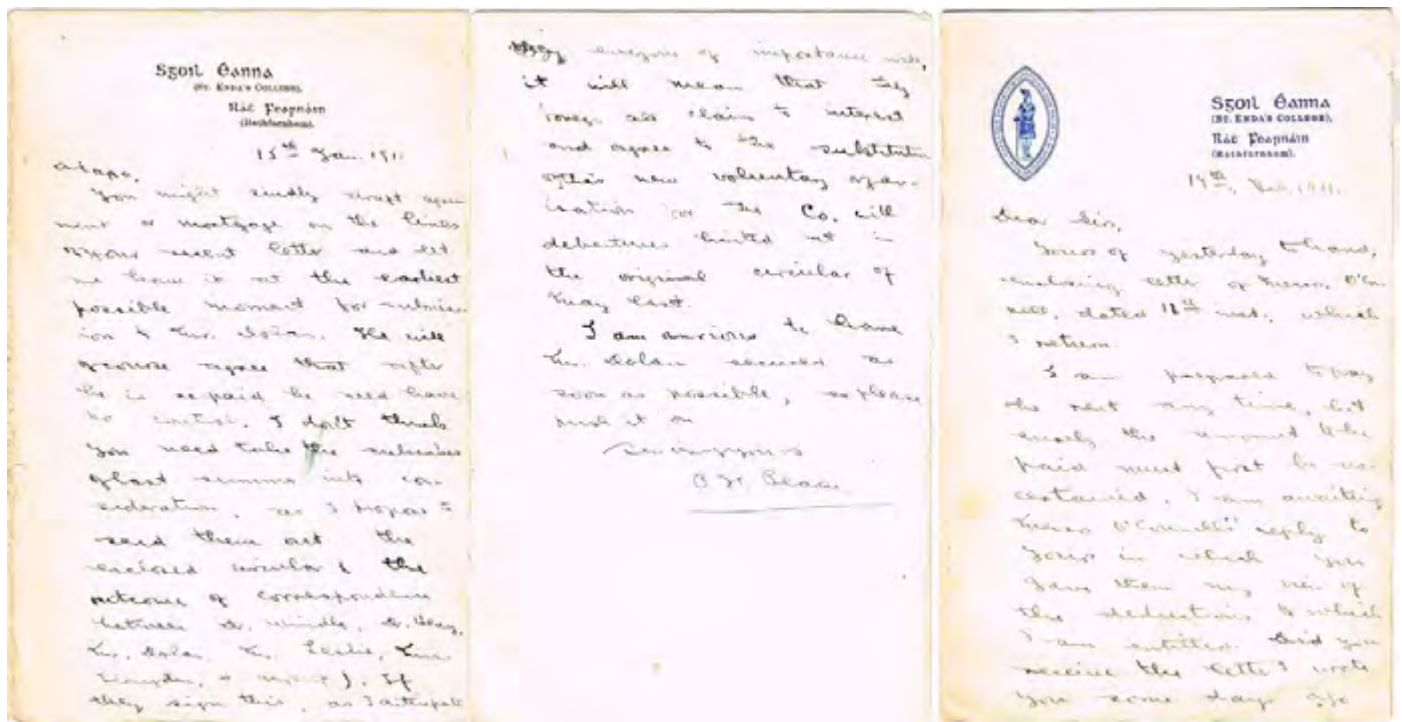 Sgoil Éanna
(St. Enda's College),
Ráṫ Fearnáin
(Rathfarnham).
15th Jan. 1911
A Capo,
You might kindly draft agree-
ment or mortgage on the lines
of your recent letter and let
me have it at the earliest
possible moment for submiss-
ion to Mr. Dolan. He will
of course agree that after
he is repaid he need have
no control. I don't think
you need take the subscribers
of last summer into con-
sideration, as I propose to
send them out the
enclosed circular (the
outcome of correspondence
between Dr. Windle, Dr. Henry,
Mr. Dolan, Mr. Leslie, Mrs
& myself). If
they sign this, as I anticipate
everyone of importance will,
it will mean that they
forego all claim to interest
and agree to the substitution
of this new voluntary organ-
isation for the Co. with
debentures hinted at in
the original circular of
May last.
I am anxious to have
Mr. Dolan secured as
soon as possible, so please
push it on
P. H. Pearse.
Sgoil Éanna
(St. Enda's College),
Ráṫ Fearnáin
(Rathfarnham).
19th, 1911.
Dear Sir,
Yours of yesterday to hand,
enclosing letter of Messrs. O'Con-
nell, dated 18th inst., which
I return.
I am prepared to pay
the rent any time, but
surely the amount to be
paid must first be as-
certained. I am awaiting
Messrs O'Connell's reply to
yours in which you
gave them my view of
the deductions to which
I am entitled. Did you
receive the letter I wrote
you some days ago